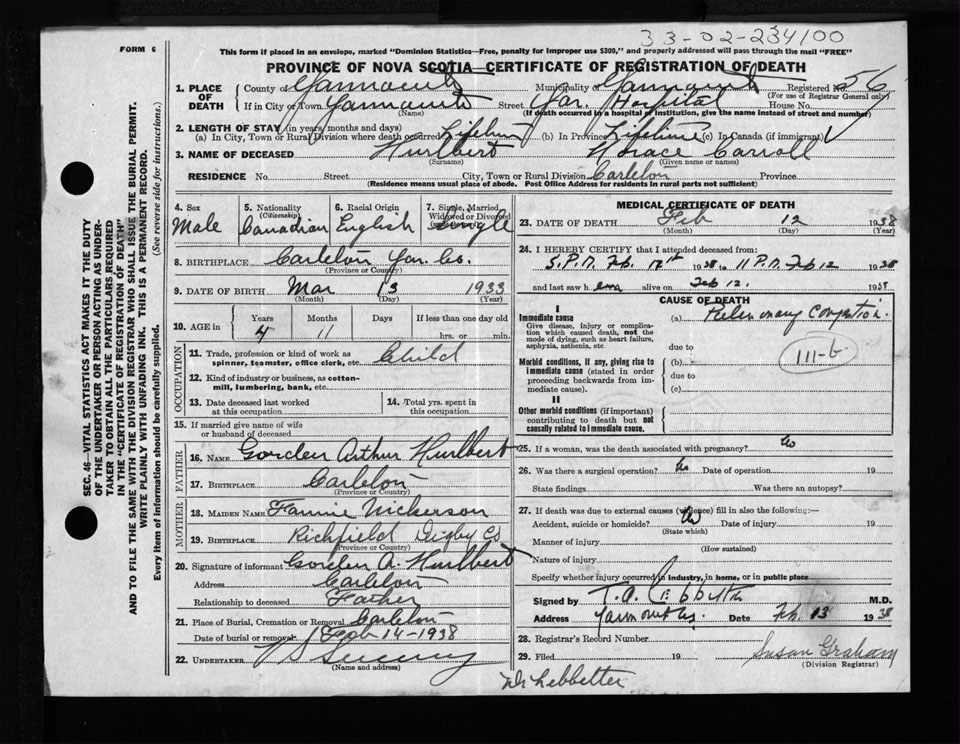 33-02-234100
FORM 6
This form if placed in an envelope, marked "Dominion Statistics—Free, penalty for improper use $300," and properly addressed will pass through the mail "FREE"
PROVINCE OF NOVA SCOTIA—CERTIFICATE OF REGISTRATION OF DEATH
SEC. 46—VITAL STATISTICS ACT MAKES IT THE DUTY
OF THE UNDERTAKER OR PERSON ACTING AS UNDER-
TAKER TO OBTAIN ALL THE PARTICULARS REQUIRED
IN THE "CERTIFICATE OF REGISTRATION OF DEATH"
AND TO FILE THE SAME WITH THE DIVISION REGISTRAR WHO SHALL ISSUE THE BURIAL PERMIT.
WRITE PLAINLY WITH UNFADING INK. THIS IS A PERMANENT RECORD.
Every item of information should be carefully supplied. (See reverse side for instructions.)
1. PLACE OF DEATH
County of Yarmouth Municipality of Yarmouth Registered No. 56
(For use of Registrar General only)
If in City or Town Yarmouth Street Yar. Hospital House No.
(Name) (If death occurred in a hospital or institution, give the name instead of street and number)
2. LENGTH OF STAY (in years, months and days)
(a) In City, Town or Rural Division where death occurred Lifetime (b) In Province Lifetime (c) In Canada (if immigrant)
3. NAME OF DECEASED Hurlbert Horace Carroll
(Surname) (Given name or names)
RESIDENCE No. Street City, Town or Rural Division Carleton Province
(Residence means usual place of abode. Post Office Address for residents in rural parts not sufficient)
4. Sex Male
5. Nationality (Citizenship) Canadian
6. Racial Origin English
7. Single, Married, Widowed or Divorced Single
8. BIRTHPLACE Carleton Yar. Co.
(Province or County)
9. DATE OF BIRTH Mar 13 1933
(Month) (Day) (Year)
10. AGE in Years Months Days If less than one day old
4 11 hrs. or min.
OCCUPATION
11. Trade, profession or kind of work as spinner, teamster, office clerk, etc. Child
12. Kind of industry or business, as cotton-mill, lumbering, bank, etc.
13. Date deceased last worked at this occupation
14. Total yrs. spent in this occupation
15. If married give name of wife or husband of deceased
FATHER
16. NAME Gorden Arthur Hurlbert
17. BIRTHPLACE Carleton
(Province or Country)
MOTHER
18. MAIDEN NAME Fannie Nickerson
19. BIRTHPLACE Richfield Digby Co
(Province or Country)
20. Signature of informant Gorden A. Hurlbert
Address Carleton
Relationship to deceased Father
21. Place of Burial, Cremation or Removal Carleton
Date of burial or removal Feb 14-1938
22. UNDERTAKER V S Sweeny
(Name and address)
MEDICAL CERTIFICATE OF DEATH
23. DATE OF DEATH Feb 12 1938
(Month) (Day) (Year)
24. I HEREBY CERTIFY that I attended deceased from:
5. P.M. Feb. 12th 1938 to 11 P.M. Feb 12 1938
and last saw h alive on Feb 12. 1938
CAUSE OF DEATH
I
Immediate cause
Give disease, injury or complication which caused death, not the mode of dying, such as heart failure, asphyxia, asthenia, etc.
(a) Pulmonary Congestion.
due to
Morbid conditions, if any, giving rise to immediate cause (stated in order proceeding backwards from immediate cause).
(b)
due to
(c)
111-b
II
Other morbid conditions (if important) contributing to death but not causally related to immediate cause.
25. If a woman, was the death associated with pregnancy? No
26. Was there a surgical operation? No Date of operation 19
State findings Was there an autopsy?
27. If death was due to external causes (violence) fill in also the following:—
Accident, suicide or homicide? No Date of injury 19
(State which)
Manner of injury
(How sustained)
Nature of injury
Specify whether injury occurred in industry, in home, or in public place
Signed by T. A. Lebbetter M.D.
Address Yarmouth N.S. Date Feb. 13 1938
28. Registrar's Record Number
29. Filed 19 Susan Graham
(Division Registrar)
Dr Lebbetter